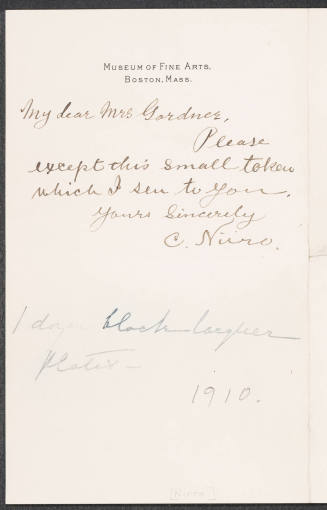 MUSEUM OF FINE ARTS.
BOSTON, MASS.
My dear Mrs Gardner,
Please
except this small token
which I sen to you.
Yours Sincerely
C. Niiro.
1 doz. black lacquer
plates –
1910.
[Niiro]